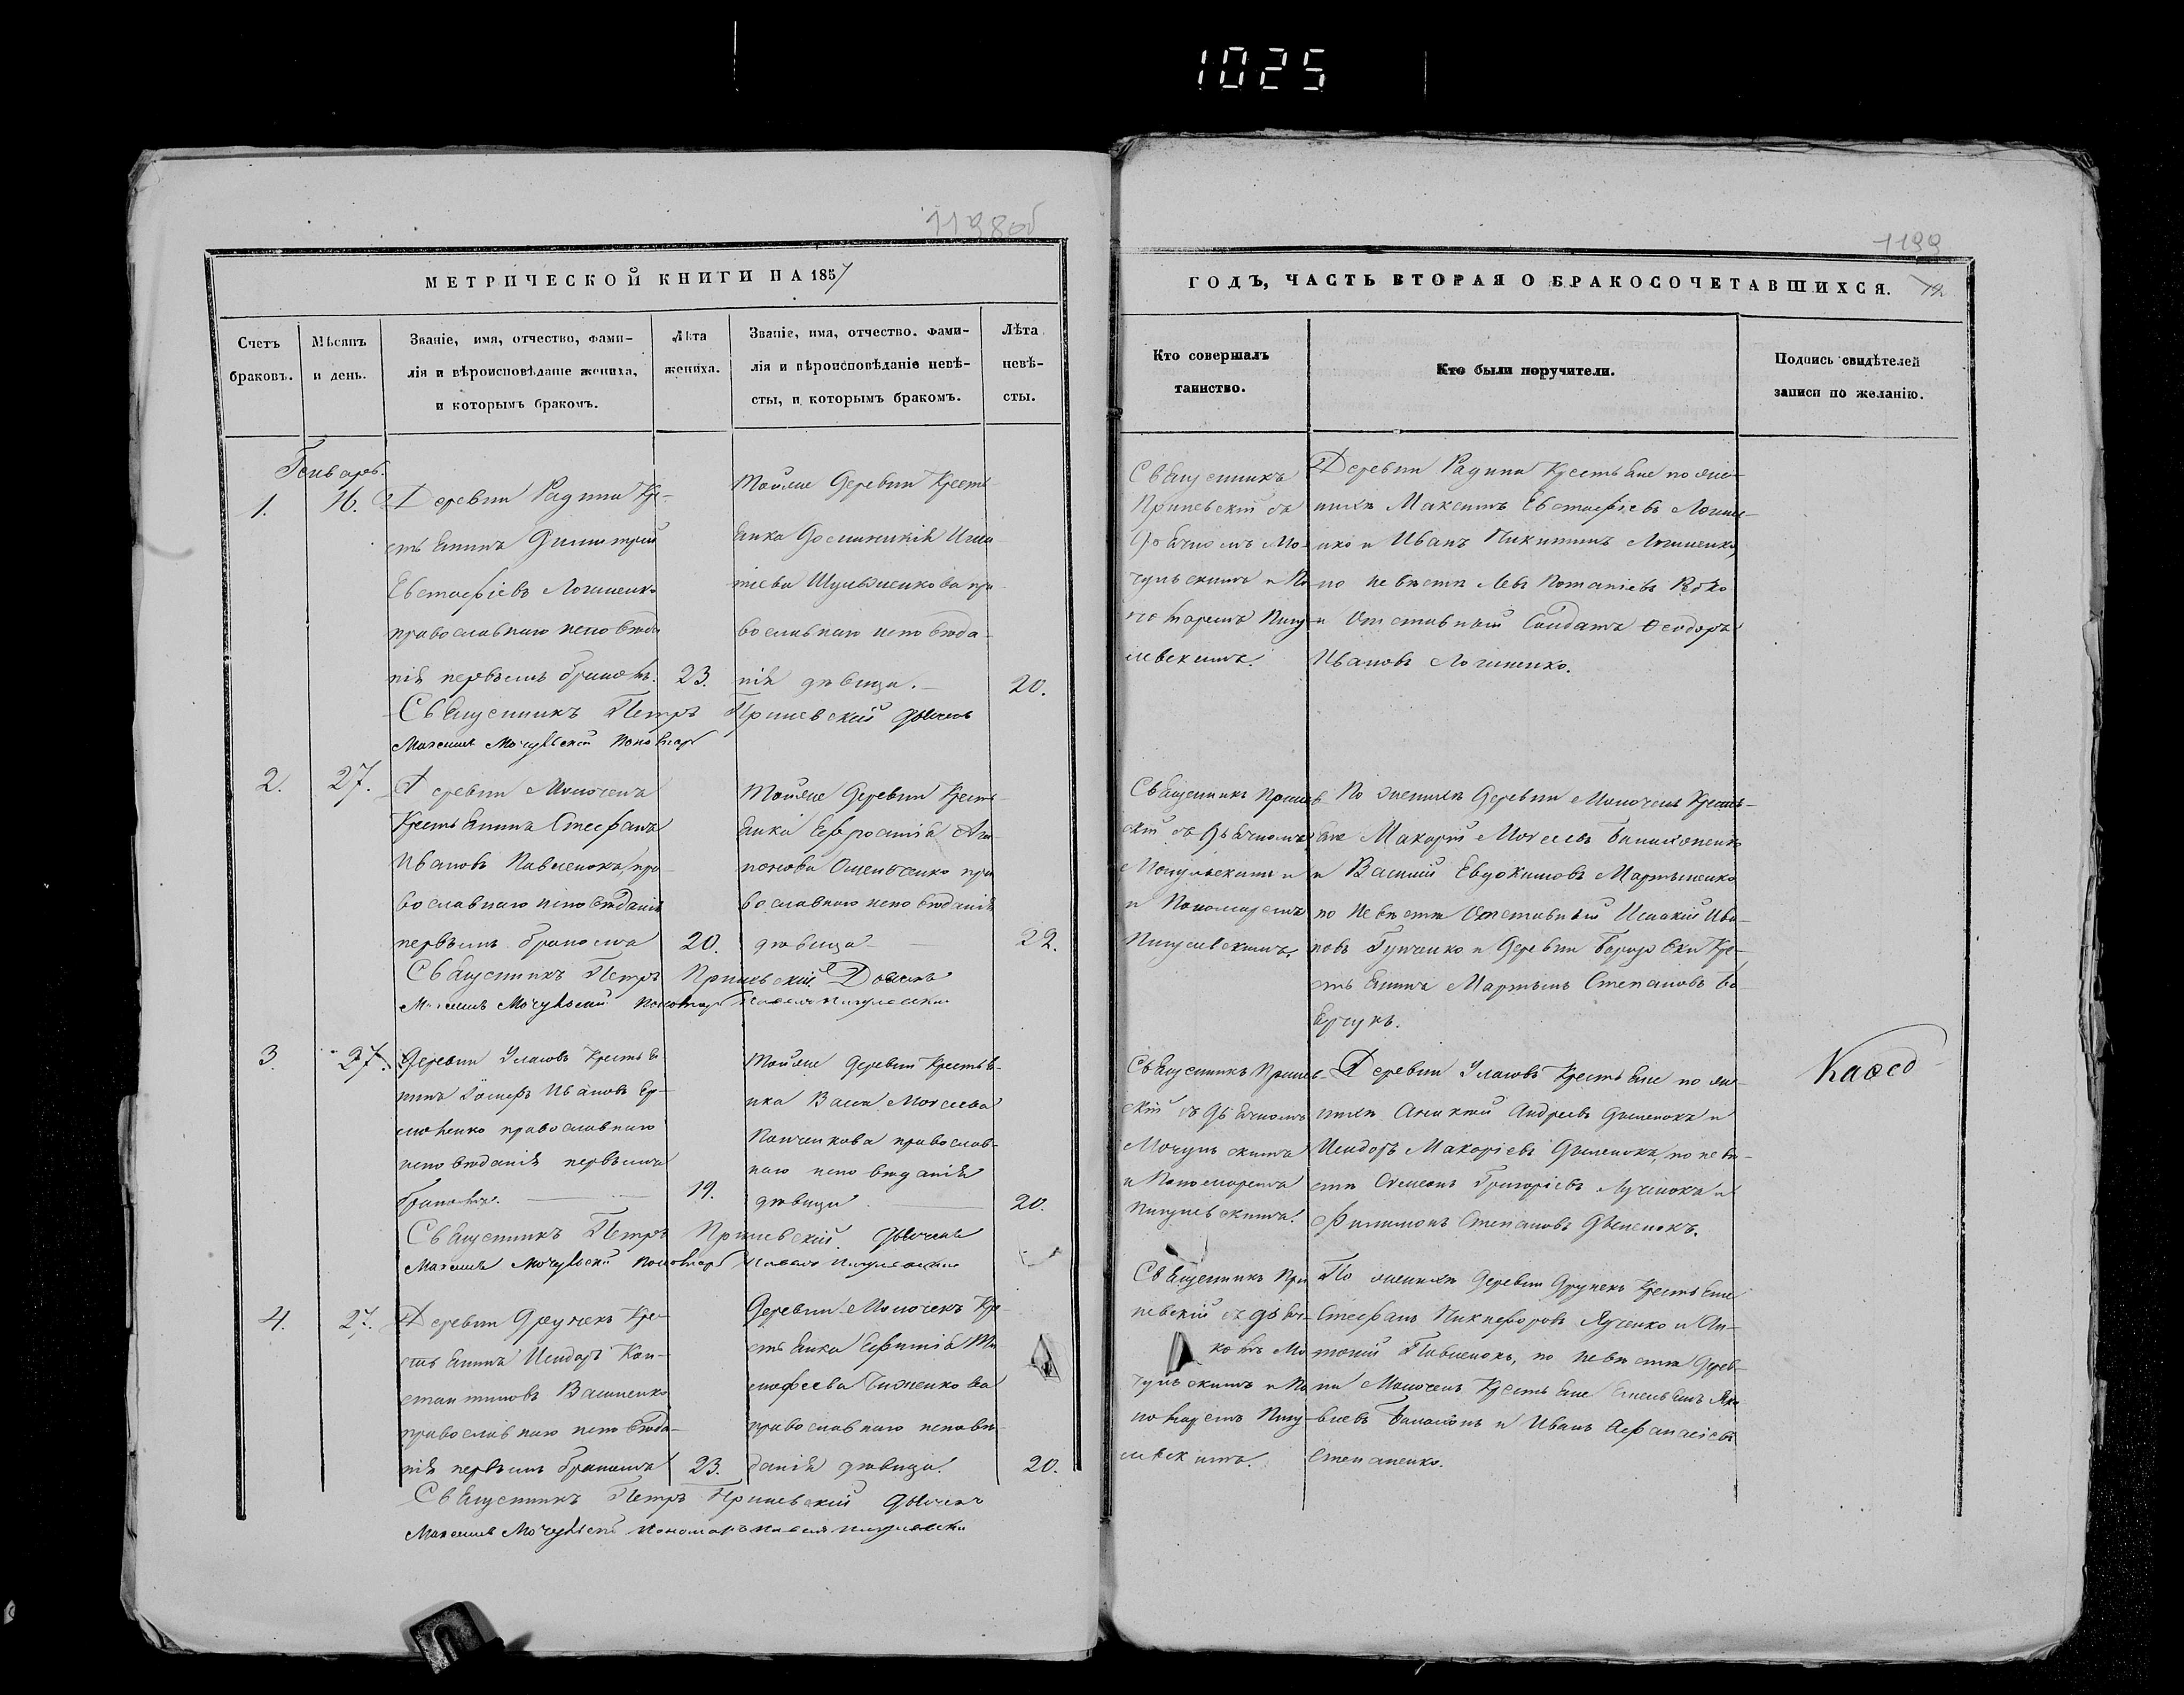 1025
1198 об
МЕТРИЧЕСКОЙ КНИГИ НА 1857
Счетъ браковъ.
Мѣсяцъ и день.
Званіе, имя, отчество, фами-
лія и вѣроисповѣданіе жениха,
и которымъ бракомъ.
Лѣта
жениха.
Званіе, имя, отчество. фами-
лія и вѣроисповѣданіе невѣ-
сты, и которымъ бракомъ.
Лѣта
невѣ-
сты.
Генварь.
1.
16.
Деревни Радина Кре-
стьянинъ Димитрій
Евстафіевъ Логиненко
православнаго исповѣда
нія первымъ бракомъ.
23.
Тойже деревни Кресть
янка
Шульженкова пра
вославнаго исповѣда-
нія дѣвица.
20.
Священникъ Петръ Пришевскій Дьячекъ
Максимъ Мочульскій Пономарь
2.
27.
Деревни Молочекъ
Крестьянинъ Стефанъ
Ивановъ Павленокъ, пра
вославнаго исповѣданія
первымъ бракомъ
20.
Тойже деревни Кресть-
янка Ефросинія
пра
вославнаго исповѣданія
дѣвица
22.
Священникъ Петръ Пришевскій Дьячекъ
Максимъ Мочульскій Пономарь
3.
27.
Деревни Уласовъ Крестья-
нинъ Іосифъ Ивановъ Ер-
моленко православнаго
исповѣданія первымъ
бракомъ.
19.
Тойже деревни Крестья-
нка Васса Моисеева
Панченкова православ-
наго исповѣданія
дѣвица
20.
Священникъ Петръ Пришевскій Дьячекъ
Максимъ Мочульскій Пономарь
4.
27.
Деревни Дручекъ Кре-
стьянинъ Исидоръ Кон-
стантиновъ Ващенко
православнаго исповѣда-
нія первымъ бракомъ
23.
Деревни Молочекъ Кре-
стьянка Ефимія Ти
мофеева Чиженкова
православнаго исповѣ-
данія дѣвица.
20.
Священникъ Петръ Пришевскій Дьячекъ
Максимъ Мочульскій Пономарь
1199
ГОДЪ, ЧАСТЬ ВТОРАЯ О БРАКОСОЧЕТАВШИХСЯ.
Кто совершалъ
таинство.
Кто были поручители.
Подпись свидѣтелей
записи по желанію.
Священникъ
Пришевскій съ
Дьячкомъ Мо-
чульскимъ и По
номаремъ Пигу-
левскимъ.
Деревни Радина Крестьяне по же-
нихѣ Максимъ Евстафіевъ Логине-
нко и Иванъ Никитинъ Логиненко,
по невѣстѣ Левъ Потапіевъ
и Отставный Солдатъ Ѳеодоръ
Ивановъ Логиненко.
Священникъ Пришев
скій съ Дьячкомъ
Мочульскимъ и
и Пономаремъ
Пигулевскимъ.
По женихѣ деревни Молочекъ Кресть-
яне Макарій Моисеевъ
и Василій Евдокимовъ Мартыненко
по невѣстѣ Отставный Исаакій Ива-
новъ и деревни Кре-
стьянинъ Мартынъ Степановъ
Священникъ Пришев-
скій съ Дьячкомъ
Мочульскимъ
и Пономаремъ
Пигулевскимъ.
Деревни Уласовъ Крестьяне по же-
нихѣ Андреевъ и
Исидоръ Макаріевъ по невѣ-
стѣ Симеонъ Григоріевъ и
Филимонъ Степановъ
Священникъ При
шевскій съ Дьяч-
комъ Мо
чульскимъ и По
номаремъ Пигу-
левскимъ.
По женихѣ деревни Дручекъ Крестьяне
Стефанъ Никифоровъ Яценко и Ан-
тоній Павленокъ, по невѣстѣ дерев-
ни Молочекъ Крестьяне Емельянъ Яко
влевъ и Иванъ Афанасіевъ
Степаненко.